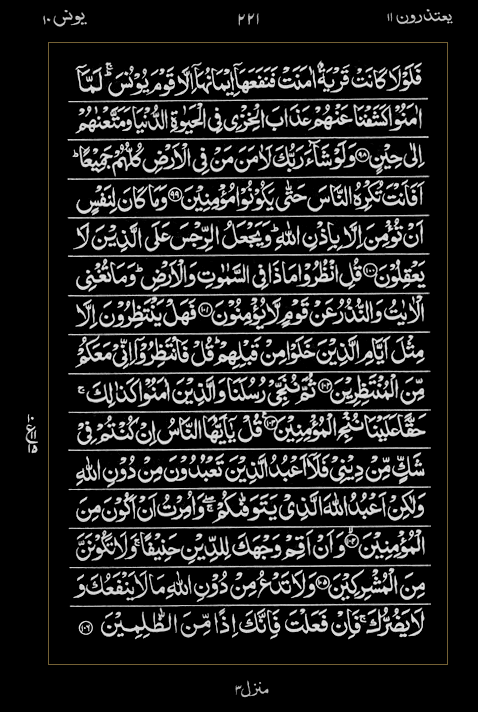 یعتذرون ۱۱ ۲۲۱ یونس ۱۰
فَلَوْلَا كَانَتْ قَرْیَةٌ اٰمَنَتْ فَنَفَعَهَاۤ اِیْمَانُهَاۤ اِلَّا قَوْمَ یُوْنُسَؕ لَمَّاۤ
اٰمَنُوْا كَشَفْنَا عَنْهُمْ عَذَابَ الْخِزْیِ فِی الْحَیٰوةِ الدُّنْیَا وَمَتَّعْنٰهُمْ
اِلٰی حِیْنٍ ﴿۹۸﴾ وَلَوْ شَآءَ رَبُّكَ لَاٰمَنَ مَنْ فِی الْاَرْضِ كُلُّهُمْ جَمِیْعًاؕ
اَفَاَنْتَ تُكْرِهُ النَّاسَ حَتّٰی یَكُوْنُوْا مُؤْمِنِیْنَ ﴿۹۹﴾ وَمَا كَانَ لِنَفْسٍ
اَنْ تُؤْمِنَ اِلَّا بِاِذْنِ اللّٰهِؕ وَیَجْعَلُ الرِّجْسَ عَلَی الَّذِیْنَ لَا
یَعْقِلُوْنَ ﴿۱۰۰﴾ قُلِ انْظُرُوْا مَاذَا فِی السَّمٰوٰتِ وَالْاَرْضِؕ وَمَا تُغْنِی
الْاٰیٰتُ وَالنُّذُرُ عَنْ قَوْمٍ لَّا یُؤْمِنُوْنَ ﴿۱۰۱﴾ فَهَلْ یَنْتَظِرُوْنَ اِلَّا
مِثْلَ اَیَّامِ الَّذِیْنَ خَلَوْا مِنْ قَبْلِهِمْؕ قُلْ فَانْتَظِرُوْۤا اِنِّیْ مَعَكُمْ
مِّنَ الْمُنْتَظِرِیْنَ ﴿۱۰۲﴾ ثُمَّ نُنَجِّیْ رُسُلَنَا وَالَّذِیْنَ اٰمَنُوْا كَذٰلِكَۚ
حَقًّا عَلَیْنَا نُنْجِ الْمُؤْمِنِیْنَ ﴿۱۰۳﴾ قُلْ یٰۤاَیُّهَا النَّاسُ اِنْ كُنْتُمْ فِیْ
شَكٍّ مِّنْ دِیْنِیْ فَلَاۤ اَعْبُدُ الَّذِیْنَ تَعْبُدُوْنَ مِنْ دُوْنِ اللّٰهِ
وَلٰكِنْ اَعْبُدُ اللّٰهَ الَّذِیْ یَتَوَفّٰىكُمْ ۖۚ وَاُمِرْتُ اَنْ اَكُوْنَ مِنَ
الْمُؤْمِنِیْنَ ﴿۱۰۴﴾ وَاَنْ اَقِمْ وَجْهَكَ لِلدِّیْنِ حَنِیْفًاۚ وَلَا تَكُوْنَنَّ
مِنَ الْمُشْرِكِیْنَ ﴿۱۰۵﴾ وَلَا تَدْعُ مِنْ دُوْنِ اللّٰهِ مَا لَا یَنْفَعُكَ وَ
لَا یَضُرُّكَۚ فَاِنْ فَعَلْتَ فَاِنَّكَ اِذًا مِّنَ الظّٰلِمِیْنَ ﴿۱۰۶﴾
منزل ۳